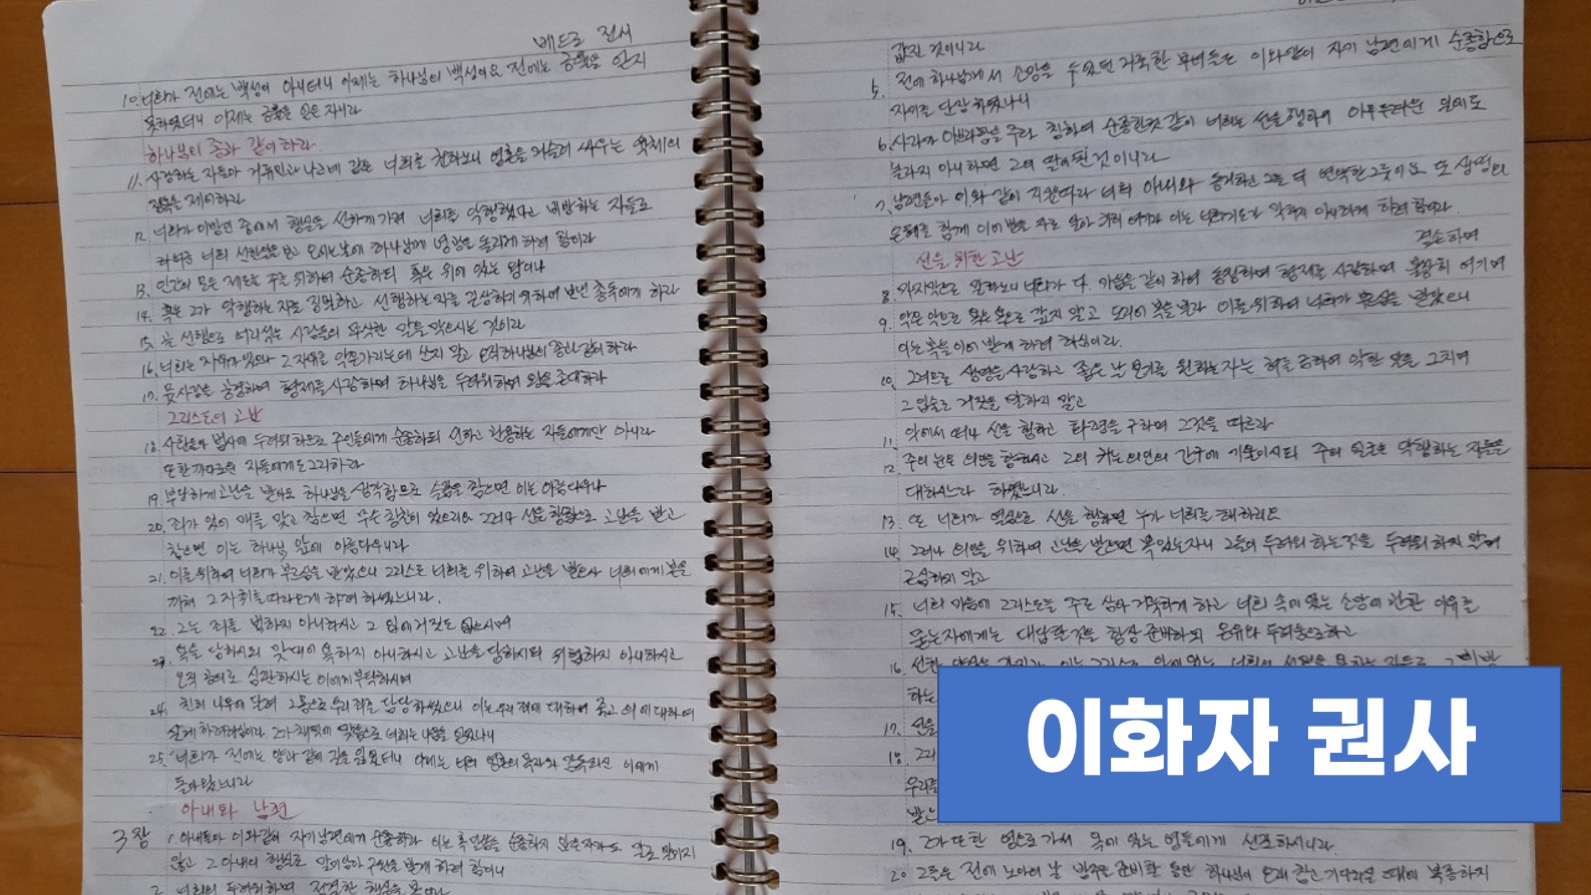 베드로 전서
10. 너희가 전에는 백성이 아니더니 이제는 하나님의 백성이요 전에는 긍휼을 얻지
못하였더니 이제는 긍휼을 얻은 자니라
하나님의 종과 같이 하라
11. 사랑하는 자들아 거류민과 나그네 같은 너희를 권하노니 영혼을 거슬러 싸우는 육체의
정욕을 제어하라
12. 너희가 이방인 중에서 행실을 선하게 가져 너희를 악행한다고 비방하는 자들로
하여금 너희 선한 일을 보고 오시는 날에 하나님께 영광을 돌리게 하려 함이라
13. 인간의 모든 제도를 주를 위하여 순종하되 혹은 위에 있는 왕이나
14. 혹은 그가 악행하는 자를 징벌하고 선행하는 자를 포상하기 위하여 보낸 총독에게 하라
15. 곧 선행으로 어리석은 사람들의 무식한 말을 막으시는 것이라
16. 너희는 자유가 있으나 그 자유로 악을 가리는데 쓰지 말고 오직 하나님의 종과 같이 하라
17. 뭇 사람을 공경하며 형제를 사랑하며 하나님을 두려워하며 왕을 존대하라
그리스도의 고난
18. 사환들아 범사에 두려워함으로 주인들에게 순종하되 선하고 관용하는 자들에게만 아니라
또한 까다로운 자들에게도 그리하라
19. 부당하게 고난을 받아도 하나님을 생각함으로 슬픔을 참으면 이는 아름다우나
20. 죄가 있어 매를 맞고 참으면 무슨 칭찬이 있으리요 그러나 선을 행함으로 고난을 받고
참으면 이는 하나님 앞에 아름다우니라
21. 이를 위하여 너희가 부르심을 받았으니 그리스도 너희를 위하여 고난을 받으사 너희에게 본을
끼쳐 그 자취를 따라오게 하려 하셨느니라.
22. 그는 죄를 범하지 아니하시고 그 입에 거짓도 없으시며
23. 욕을 당하시되 맞대어 욕하지 아니하시고 고난을 당하시되 위협하지 아니하시고
오직 공의로 심판하시는 이에게 부탁하시며
24. 친히 나무에 달려 그 몸으로 우리 죄를 담당하셨으니 이는 우리 죄에 대하여 죽고 의에 대하여
살게 하려 하심이라 그가 채찍에 맞음으로 너희는 나음을 얻었나니
25. 너희가 전에는 양과 같이 길을 잃었더니 이제는 너희 영혼의 목자와 감독되신 이에게
돌아왔느니라
아내와 남편
3장 1. 아내들아 이와 같이 자기 남편에게 순종하라 이는 혹 말씀을 순종하지 않는 자라도 말로 말미암지
않고 그 아내의 행실로 말미암아 구원을 받게 하려 함이니
2. 너희의 두려워하며 정결한 행실을 봄이라
값진 것이니라
5. 전에 하나님께 소망을 두었던 거룩한 부녀들도 이와 같이 자기 남편에게 순종함으로
자기를 단장하였나니
6. 사라가 아브라함을 주라 칭하여 순종한 것 같이 너희는 선을 행하고 아무 두려운 일에도
놀라지 아니하면 그의 딸이 된 것이니라
7. 남편들아 이와 같이 지식을 따라 너희 아내와 동거하고 그는 더 연약한 그릇이요 또 생명의
은혜를 함께 이어받을 자로 알아 귀히 여기라 이는 너희 기도가 막히지 아니하게 하려 함이라.
선을 위한 고난
겸손하며
8. 마지막으로 말하노니 너희가 다 마음을 같이 하여 동정하며 형제를 사랑하며 불쌍히 여기며
9. 악을 악으로 욕을 욕으로 갚지 말고 도리어 복을 빌라 이를 위하여 너희가 부르심을 받았으니
이는 복을 이어 받게 하려 하심이라.
10. 그러므로 생명을 사랑하고 좋은 날 보기를 원하는 자는 혀를 금하여 악한 말을 그치며
그 입술로 거짓을 말하지 말고
11. 악에서 떠나 선을 행하고 화평을 구하며 그것을 따르라
12. 주의 눈은 의인을 향하시고 그의 귀는 의인의 간구에 기울이시되 주의 얼굴은 악행하는 자들을
대하시느니라 하였느니라.
13. 또 너희가 열심으로 선을 행하면 누가 너희를 해하리요
14. 그러나 의를 위하여 고난을 받으면 복 있는 자니 그들이 두려워하는 것을 두려워하지 말며
근심하지 말고
15. 너희 마음에 그리스도를 주로 삼아 거룩하게 하고 너희 속에 있는 소망에 관한 이유를
묻는 자에게는 대답할 것을 항상 준비하되 온유와 두려움으로 하고
16. 선한
하는
17. 선을
18. 그리
우리를
받는
19. 그가 또한 영으로 가서 옥에 있는 영들에게 선포하시니라.
20. 그들은 전에 노아의 날 방주를 준비할 동안 하나님이 오래 참고 기다리실 때에 복종하지
이화자 권사